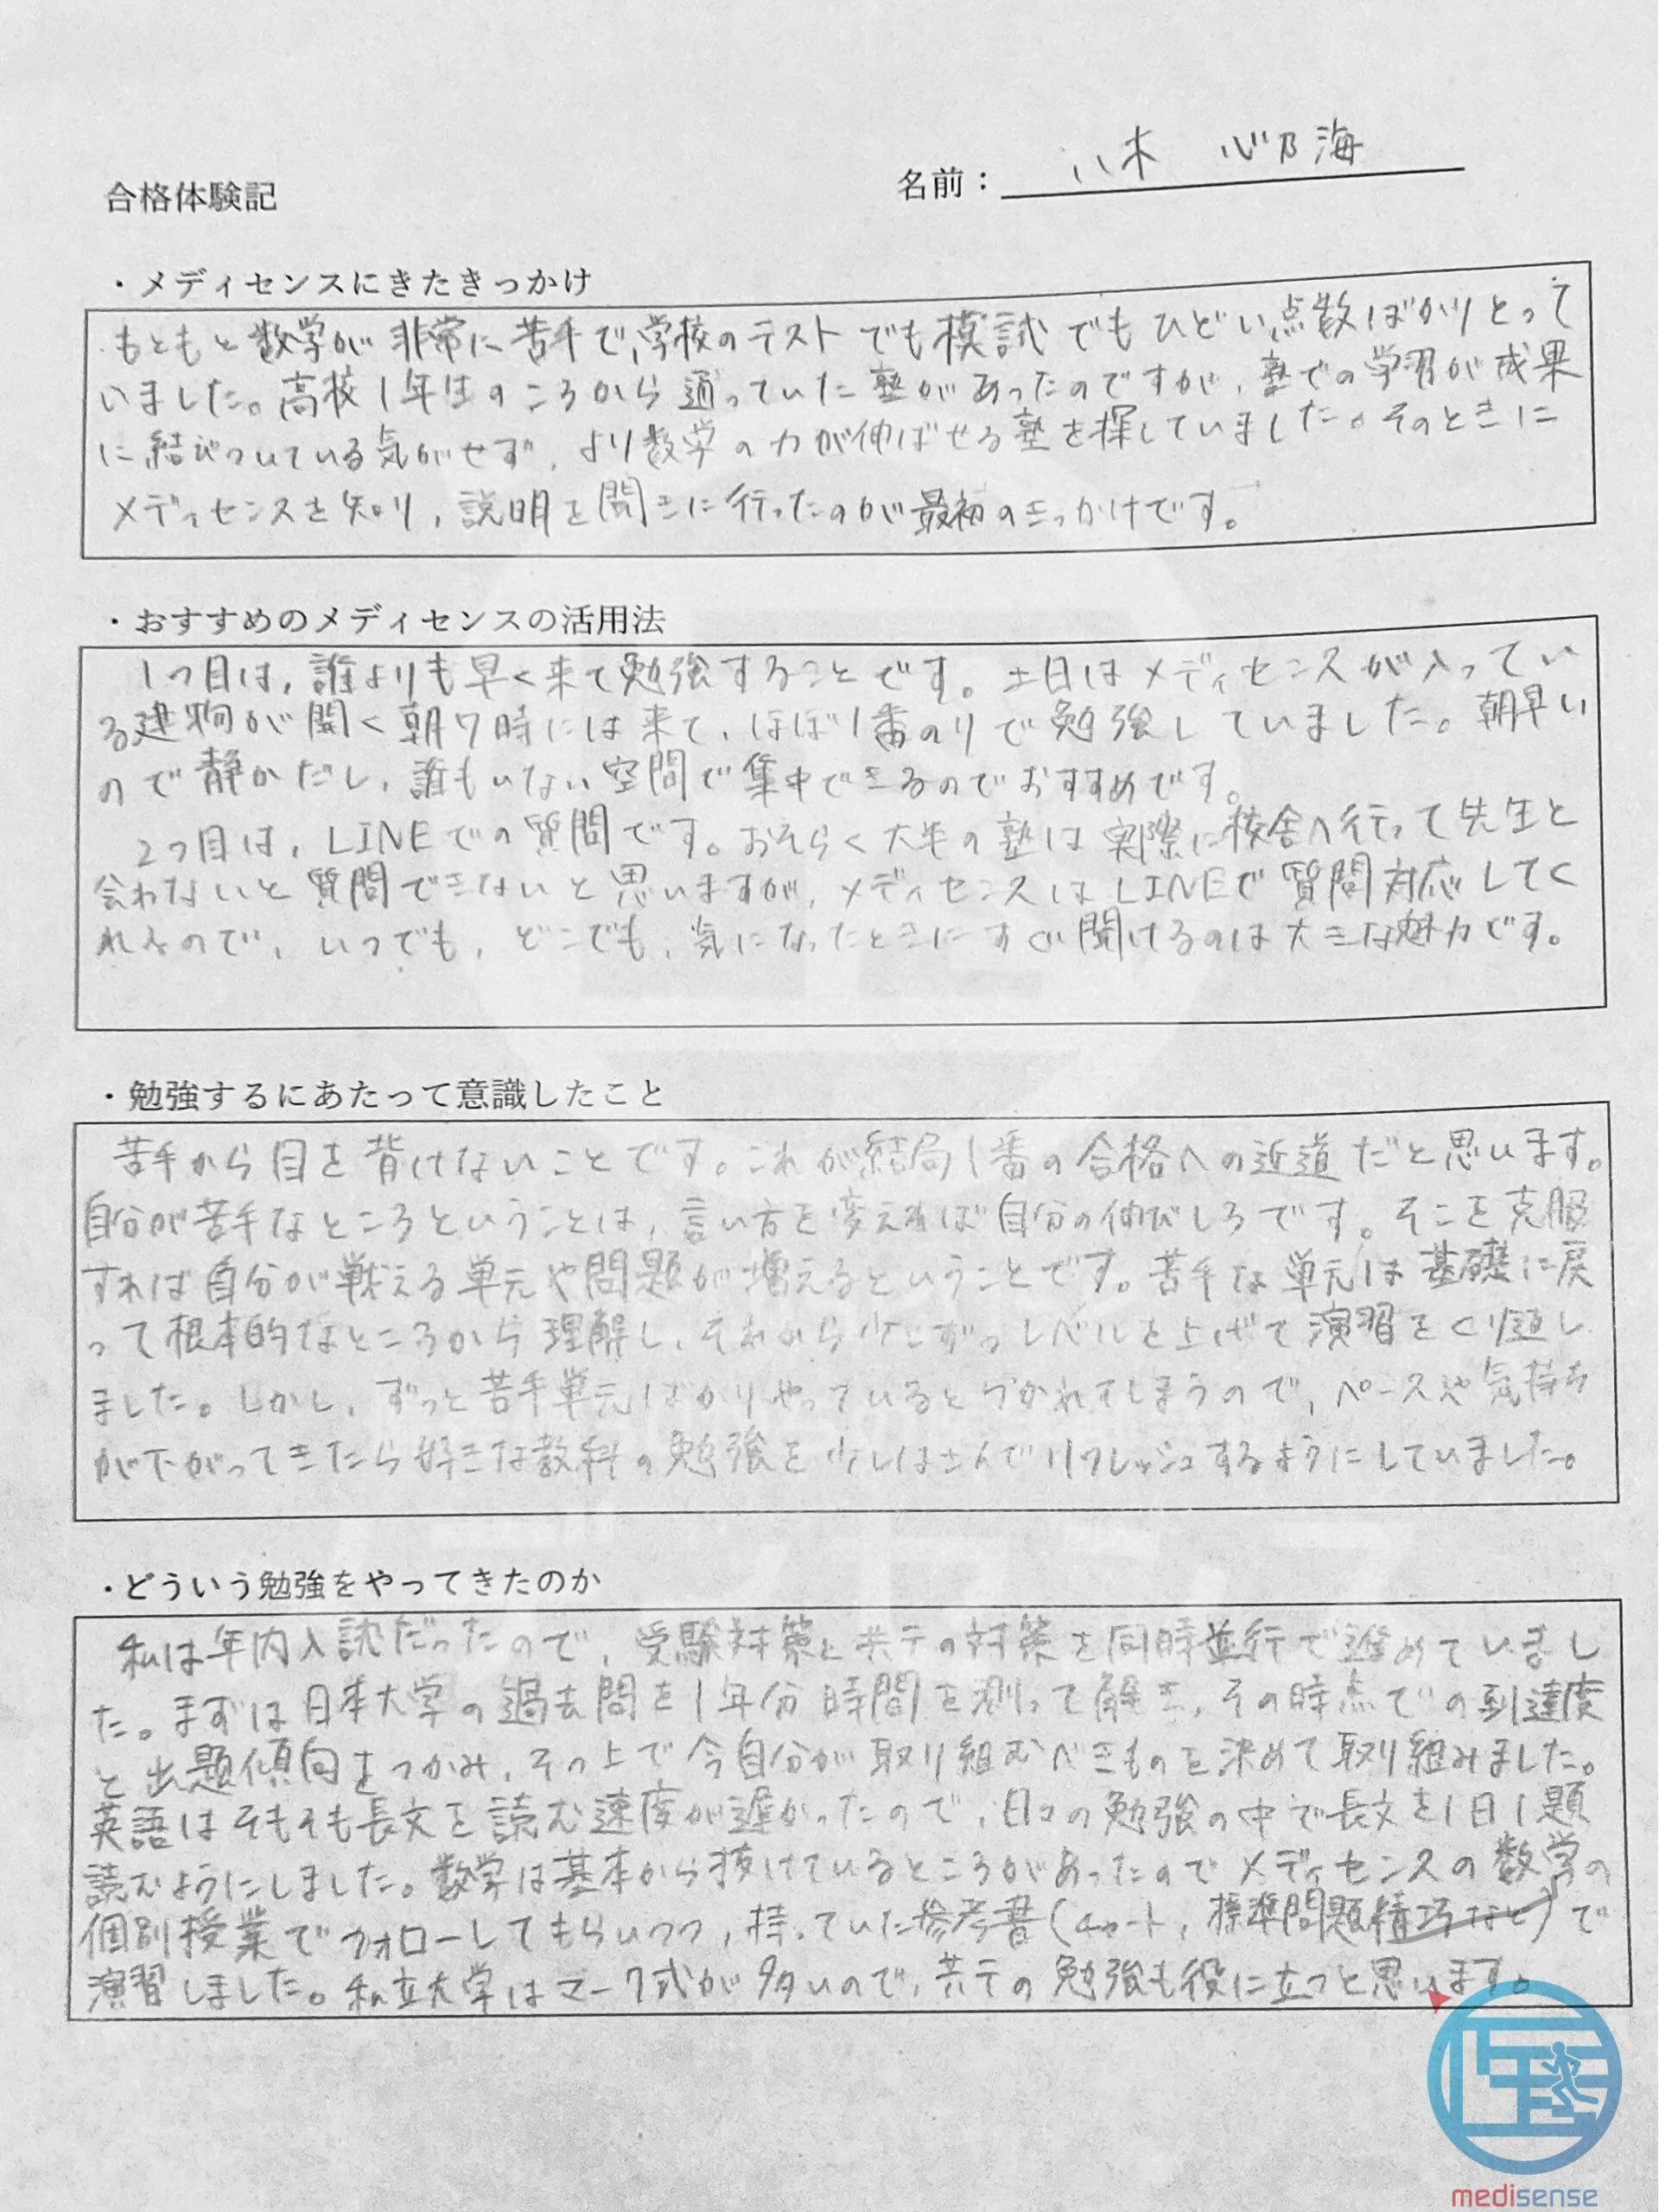 合格体験記
名前：八木 心乃海
・メディセンスにきたきっかけ
もともと数学が非常に苦手で、学校のテストでも模試でもひどい点数ばかりとって
いました。高校1年生のころから通っていた塾があったのですが、塾での学習が成果
に結びついている気がせず、より数学の力が伸ばせる塾を探していました。そのときに
メディセンスを知り、説明を聞きに行ったのが最初のきっかけです。
・おすすめのメディセンスの活用法
1つ目は、誰よりも早く来て勉強することです。土日はメディセンスが入ってい
る建物が開く朝7時には来て、ほぼ1番のりで勉強していました。朝早い
ので静かだし、誰もいない空間で集中できるのでおすすめです。
2つ目は、LINEでの質問です。おそらく大半の塾は実際に校舎へ行って先生と
会わないと質問できないと思いますが、メディセンスはLINEで質問対応してく
れるので、いつでも、どこでも、気になったときにすぐ聞けるのは大きな魅力です。
・勉強するにあたって意識したこと
苦手から目を背けないことです。これが結局1番の合格への近道だと思います。
自分が苦手なところということは、言い方を変えれば自分の伸びしろです。そこを克服
すれば自分が戦える単元や問題が増えるということです。苦手な単元は基礎に戻
って根本的なところから理解し、それから少しずつレベルを上げて演習をくり返し
ました。しかし、ずっと苦手単元ばかりやっているとつかれてしまうので、ペースや気持ち
が下がってきたら好きな教科の勉強を少しはさんでリフレッシュするようにしていました。
・どういう勉強をやってきたのか
私は年内入試だったので、受験対策と共テの対策を同時並行で進めていまし
た。まずは日本大学の過去問を1年分時間を測って解き、その時点での到達度
と出題傾向をつかみ、その上で今自分が取り組むべきものを決めて取り組みました。
英語はそもそも長文を読む速度が遅かったので、日々の勉強の中で長文を1日1題
読むようにしました。数学は基本から抜けているところがあったのでメディセンスの数学の
個別授業でフォローしてもらいつつ、持っていた参考書(チャート、標準問題精巧など)で
演習しました。私立大学はマーク式が多いので、共テの勉強も役に立つと思います。
medisense